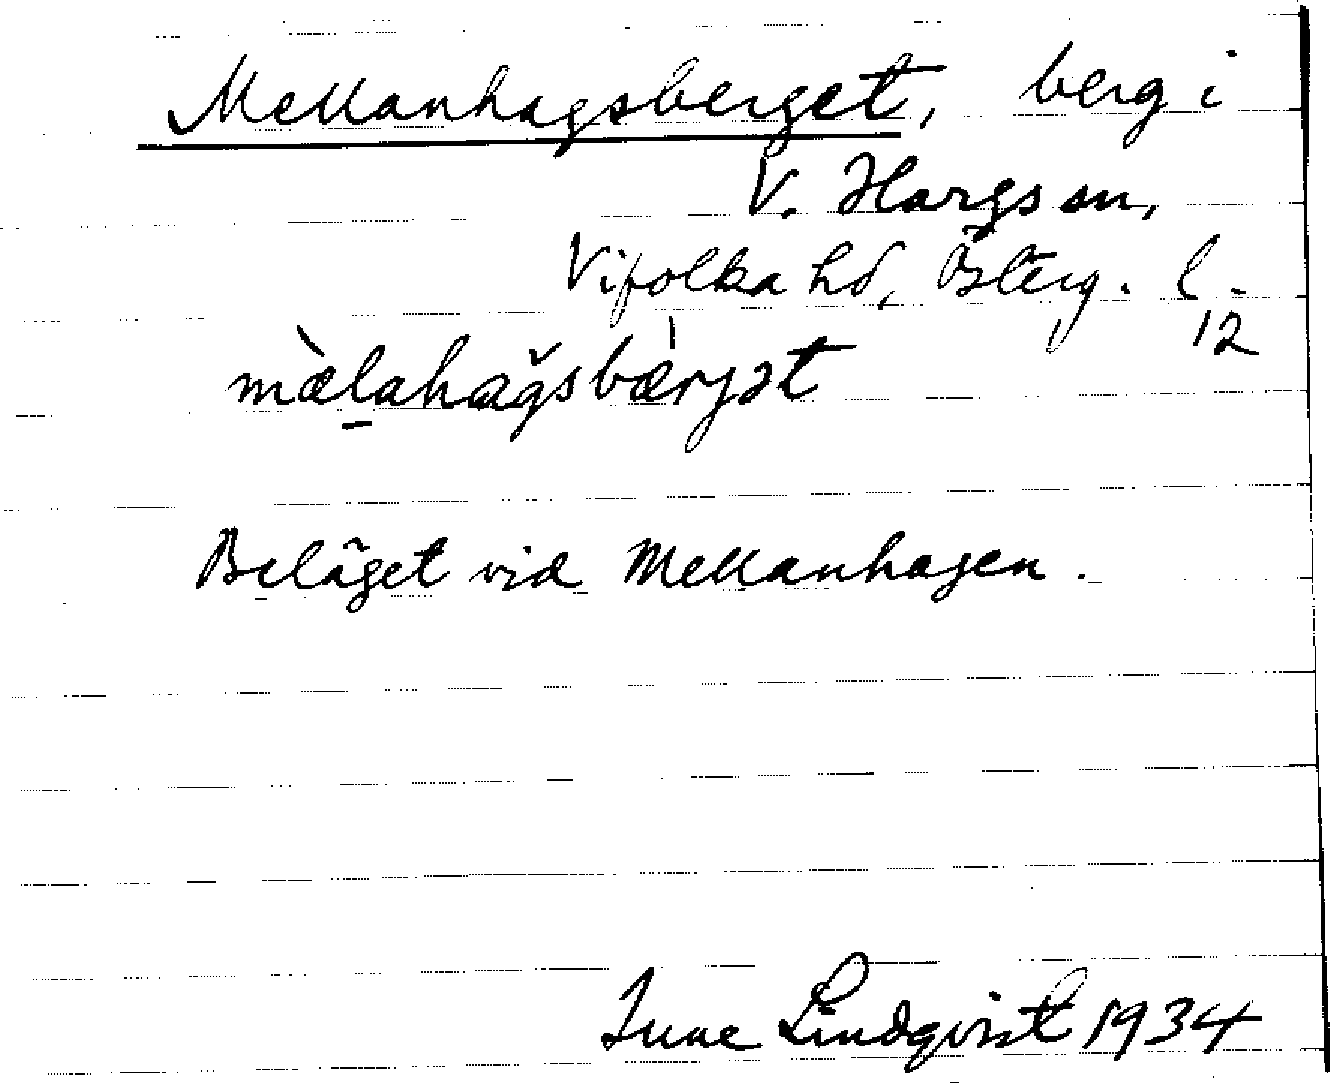 Mellanhagsberget, berg i
V. Hargs sn,
Vifolka hd, Österg. l.
12
mæ̀lahagsbær̀jət
Beläget vid Mellanhagen.
Sune Lindqvist 1934